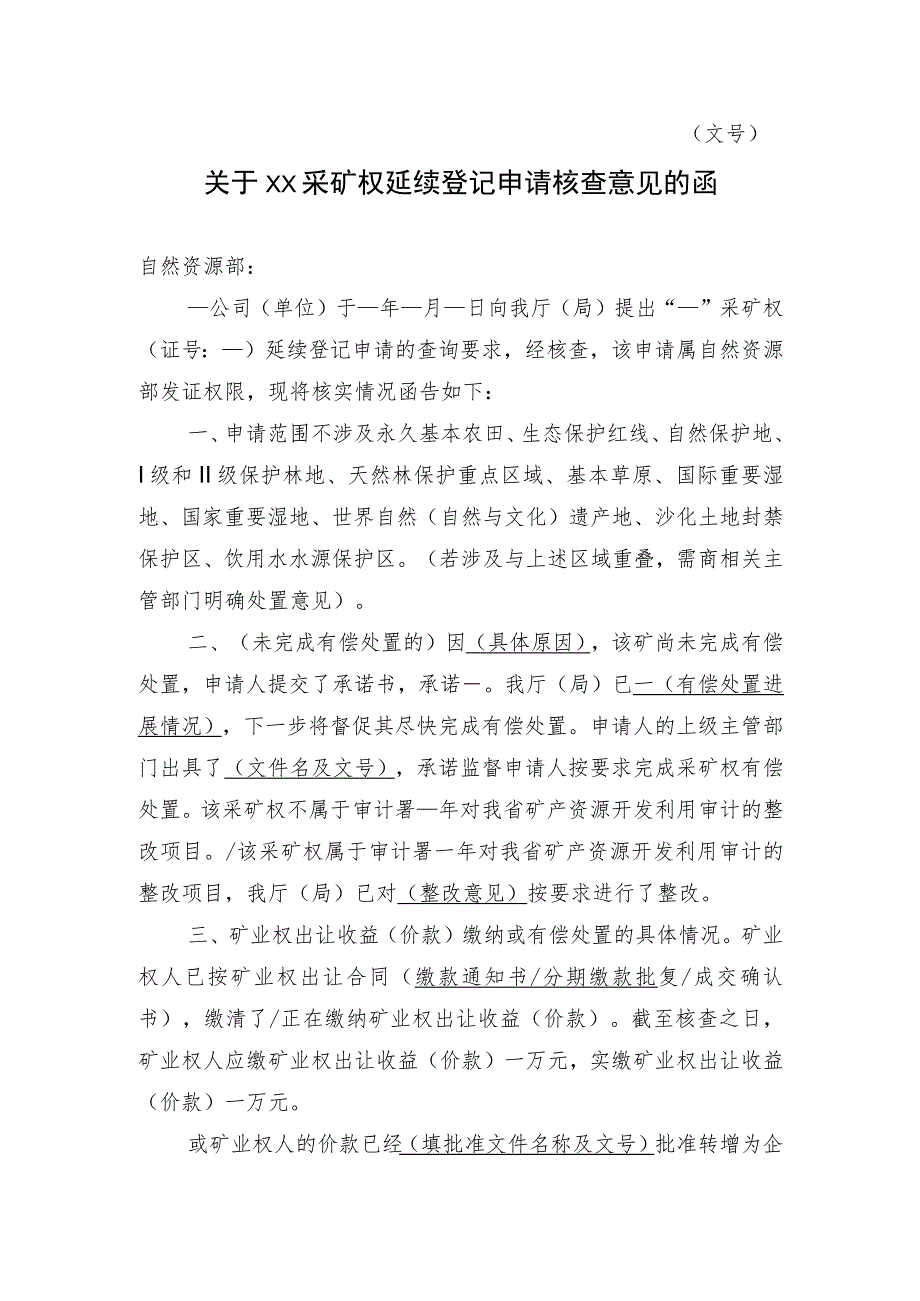 （文号）
关于 XX 采矿权延续登记申请核查意见的函
自然资源部：
—公司（单位）于—年—月—日向我厅（局）提出“—”采矿权
（证号：—）延续登记申请的查询要求，经核查，该申请属自然资源
部发证权限，现将核实情况函告如下：
一、申请范围不涉及永久基本农田、生态保护红线、自然保护地、
I 级和 II 级保护林地、天然林保护重点区域、基本草原、国际重要湿
地、国家重要湿地、世界自然（自然与文化）遗产地、沙化土地封禁
保护区、饮用水水源保护区。（若涉及与上述区域重叠，需商相关主
管部门明确处置意见）。
二、（未完成有偿处置的）因（具体原因），该矿尚未完成有偿
处置，申请人提交了承诺书，承诺－。我厅（局）已一（有偿处置进
展情况），下一步将督促其尽快完成有偿处置。申请人的上级主管部
门出具了（文件名及文号），承诺监督申请人按要求完成采矿权有偿
处置。该采矿权不属于审计署—年对我省矿产资源开发利用审计的整
改项目。/该采矿权属于审计署一年对我省矿产资源开发利用审计的
整改项目，我厅（局）已对（整改意见）按要求进行了整改。
三、矿业权出让收益（价款）缴纳或有偿处置的具体情况。矿业
权人已按矿业权出让合同（缴款通知书/分期缴款批复/成交确认
书），缴清了/正在缴纳矿业权出让收益（价款）。截至核查之日，
矿业权人应缴矿业权出让收益（价款）一万元，实缴矿业权出让收益
（价款）一万元。
或矿业权人的价款已经（填批准文件名称及文号）批准转增为企